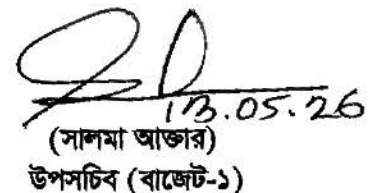 13.05.26
(সালমা আক্তার)
উপসচিব (বাজেট-১)